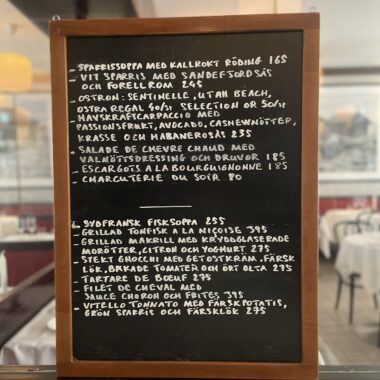 - SPARRISSOPPA MED KALLRÖKT RÖDING 165
- VIT SPARRIS MED SANDEFJORDSÅS
OCH FORELLROM 245
- OSTRON: SENTINELLE, UTAH BEACH,
OSTRA REGAL 40/ST SELECTION OR 50/ST
- HAVSKRÄFTCARPACCIO MED
PASSIONSFRUKT, AVOCADO, CASHEWNÖTTER,
KRASSE OCH HABANEROSÅS 235
- SALADE DE CHEVRE CHAUD MED
VALNÖTTSDRESSING OCH DRUVOR 185
- ESCARGOTS A LA BOURGUIGNONNE 185
- CHARCUTERIE DU SOIR 80
- SYDFRANSK FISKSOPPA 255
- GRILLAD TONFISK A LA NIÇOISE 395
- GRILLAD MAKRILL MED KRYDDGLASERADE
MORÖTTER, CITRON OCH YOGHURT 275
- STEKT GNOCCHI MED GETOSTKRÄM, FÄRSK
LÖK, BAKADE TOMATER OCH ÖRT OLJA 275
- TARTARE DE BOEUF 275
- FILET DE CHEVAL MED
SAUCE CHORON OCH FRITES 395
- VITELLO TONNATO MED FÄRSKPOTATIS,
GRÖN SPARRIS OCH FÄRSKLÖK 275